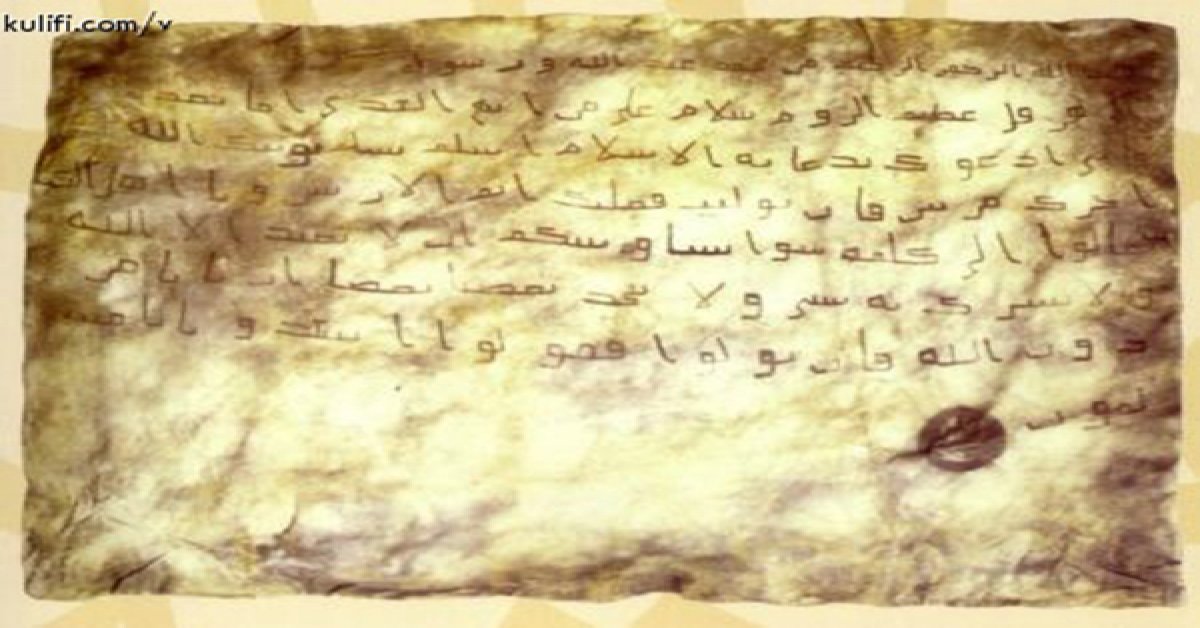 kulifi.com/v
الله الرحمن الرحيم من محمد عبد الله و رسوله
هرقل عظيم الروم سلام على من اتبع الهدى اما بعد
ادعوك بدعاية الاسلام اسلم تسلم يؤتك الله
اجرك مرتين فان توليت فعليك اثم الاريسين و يا اهل الكتب
تعالوا الى كلمة سوا بيننا و بينكم ان لا نعبد الا الله
و لا نشرك به شي و لا يتخذ بعضنا بعضا اربابا من
دون الله فان تولوا فقولوا اشهدوا بانا مس
لمون